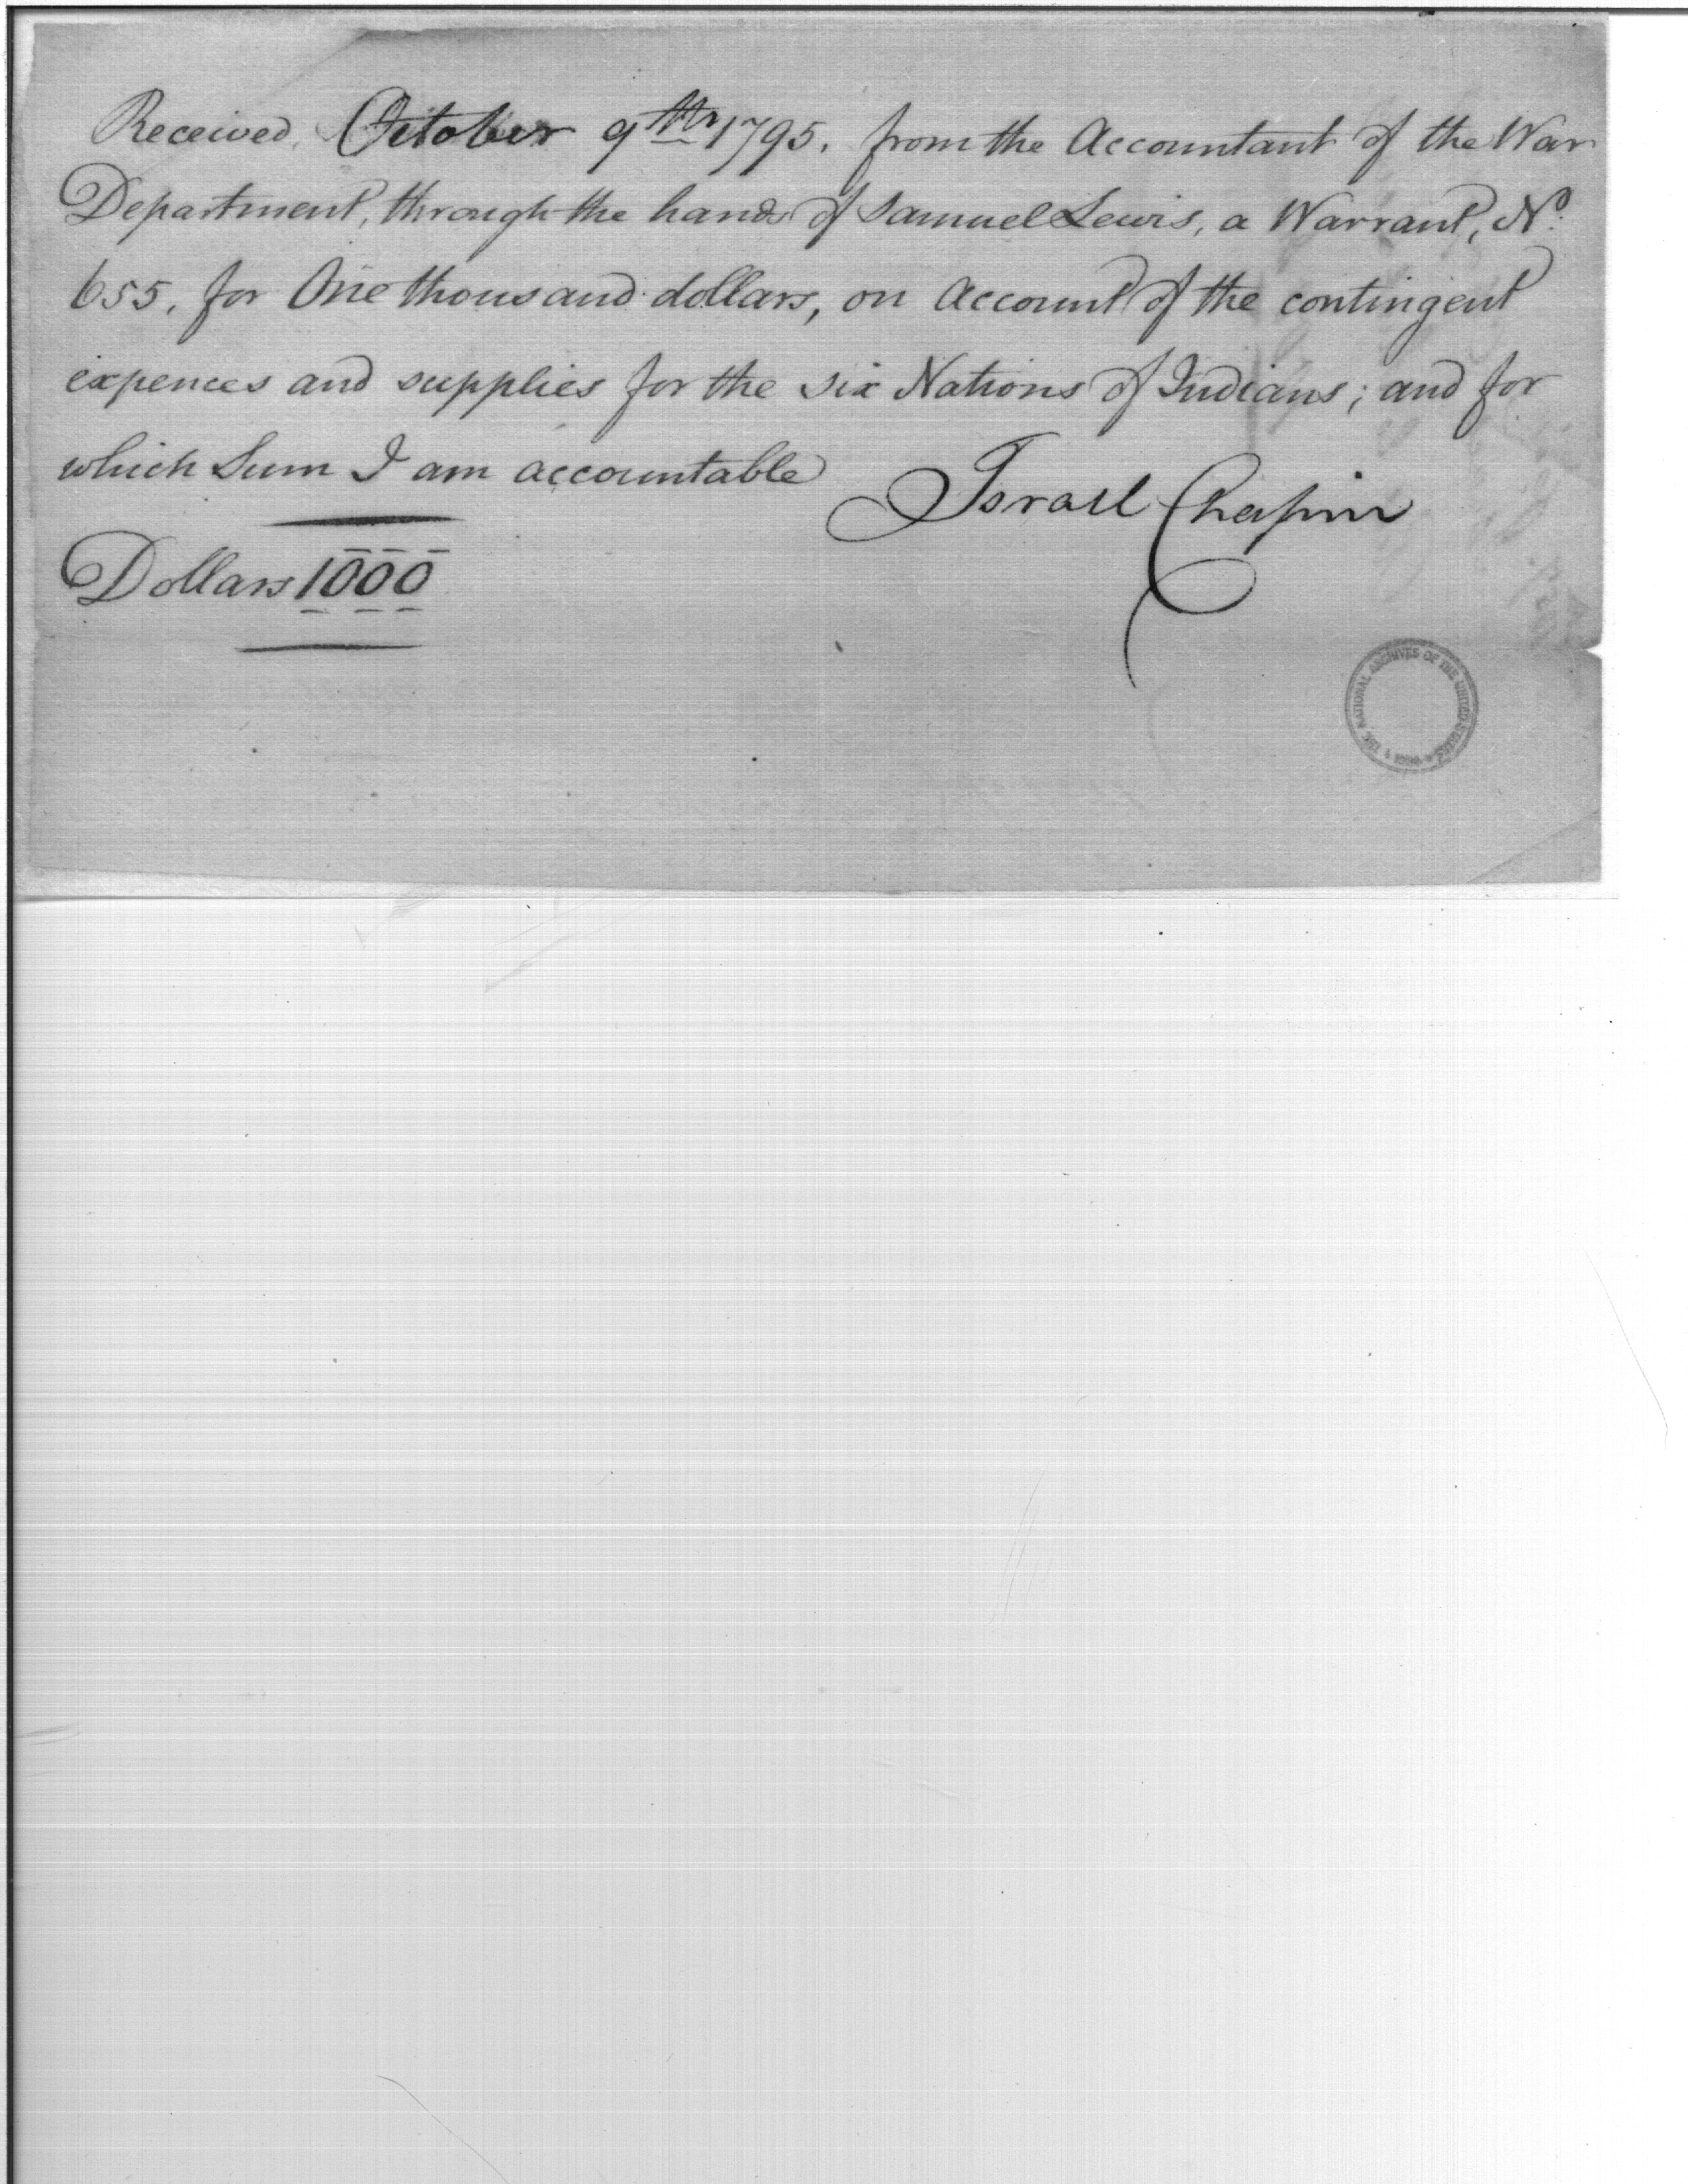 Received October 9th 1795. from the Accountant of the War
Department, through the hands of Samuel Lewis, a Warrant, No.
655. for One thousand dollars, on Account of the contingent
expences and supplies for the six Nations of Indians; and for
which Sum I am accountable
Israel Chapin
Dollars 1000
THE NATIONAL ARCHIVES OF THE UNITED STATES